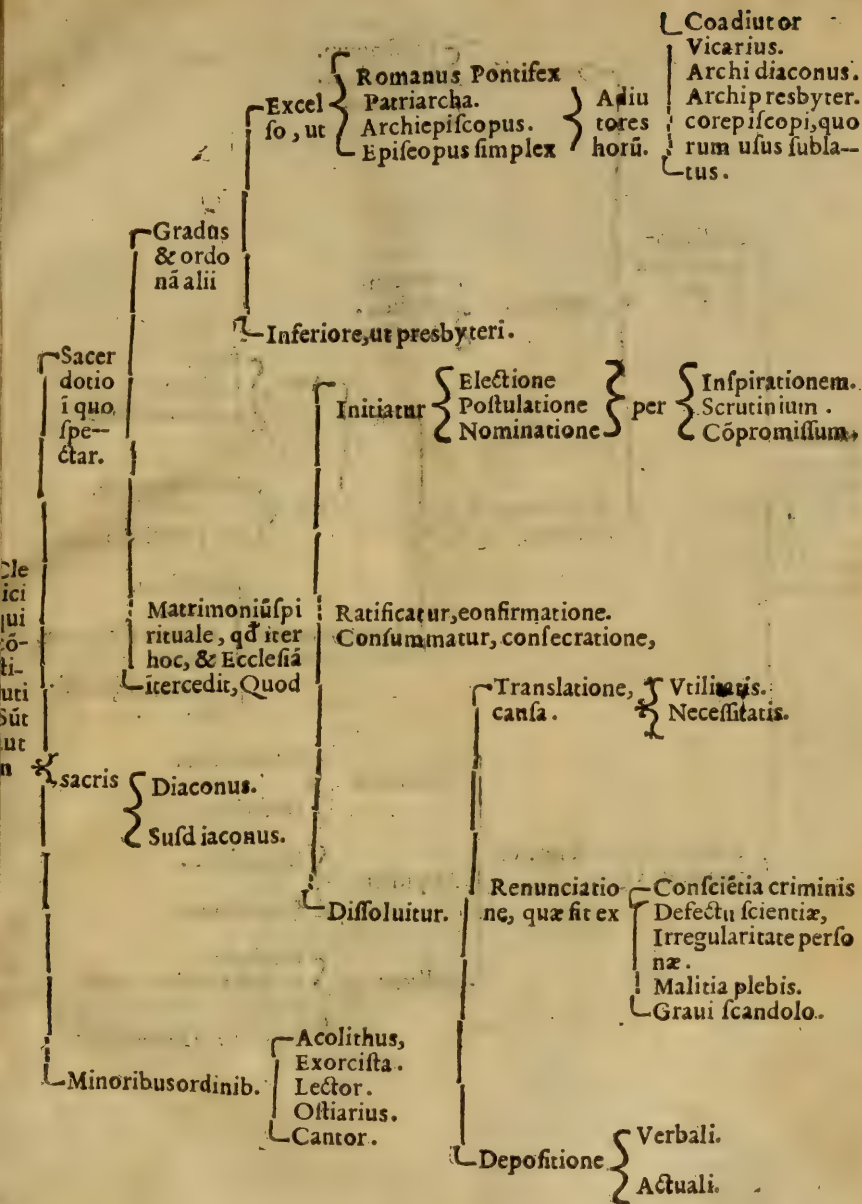 Coadiutor
Vicarius.
Archi diaconus.
Archipresbyter.
corepiſcopi, quo
rum uſus ſubla--
tus.
Romanus Pontifex
Patriarcha.
Archiepiſcopus.
Epiſcopus ſimplex
Adiu
tores
horũ.
Excel
ſo, ut
Gradus
& ordo
nã alii
Inferiore, ut presbyteri.
Sacer
dotio
ĩ quo
ſpe--
ctar.
Initiatur
Electione
Poſtulatione
Nominatione
per
Inſpirationem.
Scrutinium.
Cõpromiſſum,
Cle
ici
qui
cõ-
ti-
uti
Sũt
ut
n
Matrimoniũſpi
rituale, qđ iter
hoc, & Eccleſiã
ĩtercedit, Quod
Ratificatur, eonfirmatione.
Conſummatur, conſecratione,
Translatione,
cauſa.
Vtilitatis.
Neceſſitatis.
sacris
Diaconus.
Suſdiaconus.
Diſſoluitur.
Renunciatio
ne, quæ fit ex
Conſciẽtia criminis
Defectu ſcientiæ,
Irregularitate perſo
næ.
Malitia plebis.
Graui ſcandolo.
Minoribusordinib.
Acolithus,
Exorciſta.
Lector.
Oſtiarius.
Cantor.
Depoſitione
Verbali.
Actuali.